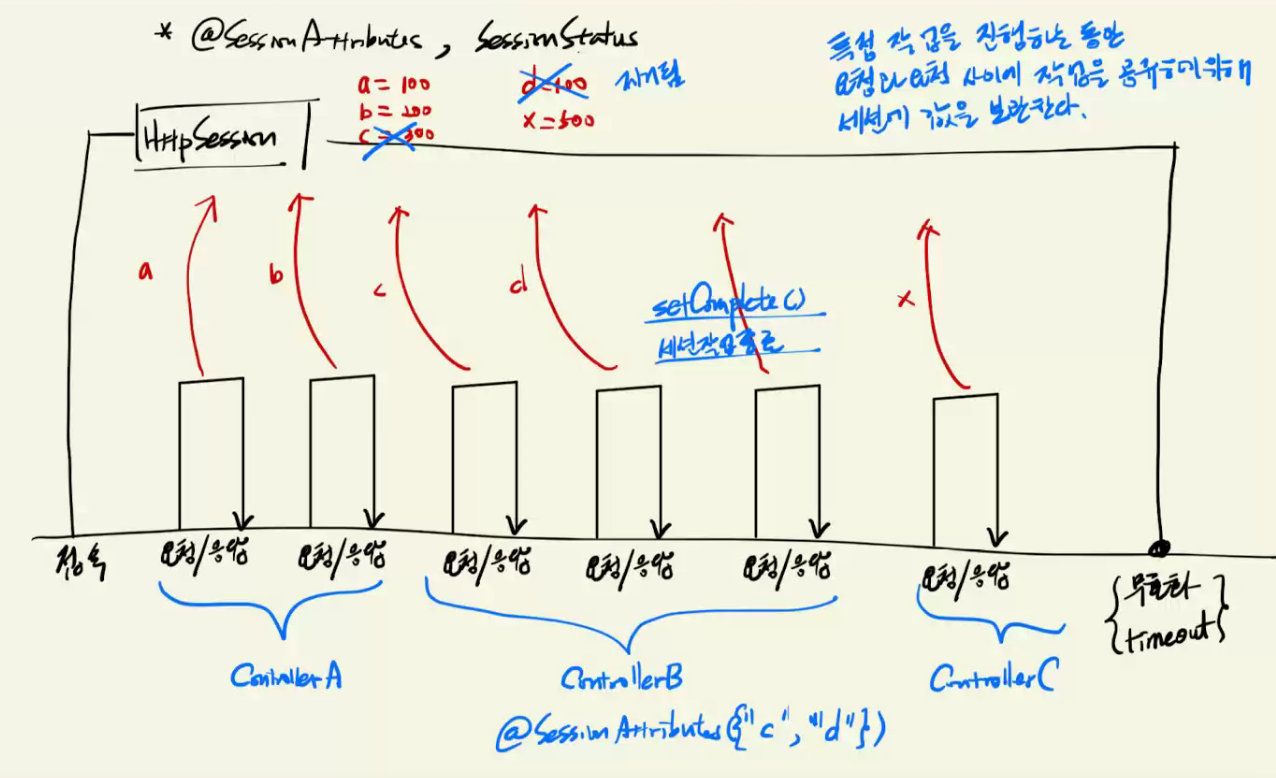 * @SessionAttributes, SessionStatus
특정 작업을 진행하는 동안
요청과 요청 사이에 작업을 공유하기위해
세션에 값을 보관한다.
a = 100
b = 200
c = 300
d = 400
x = 500
HttpSession
a
b
c
d
setComplete()
세션작업종료
x
접속
요청/응답
요청/응답
요청/응답
요청/응답
요청/응답
요청/응답
무효화
timeout
ControllerA
ControllerB
ControllerC
@SessionAttributes({"c", "d"})